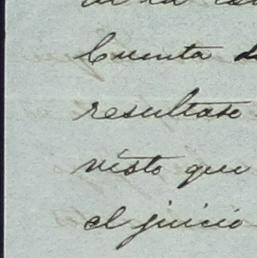 Cuenta
resultase
visto que
el juicio